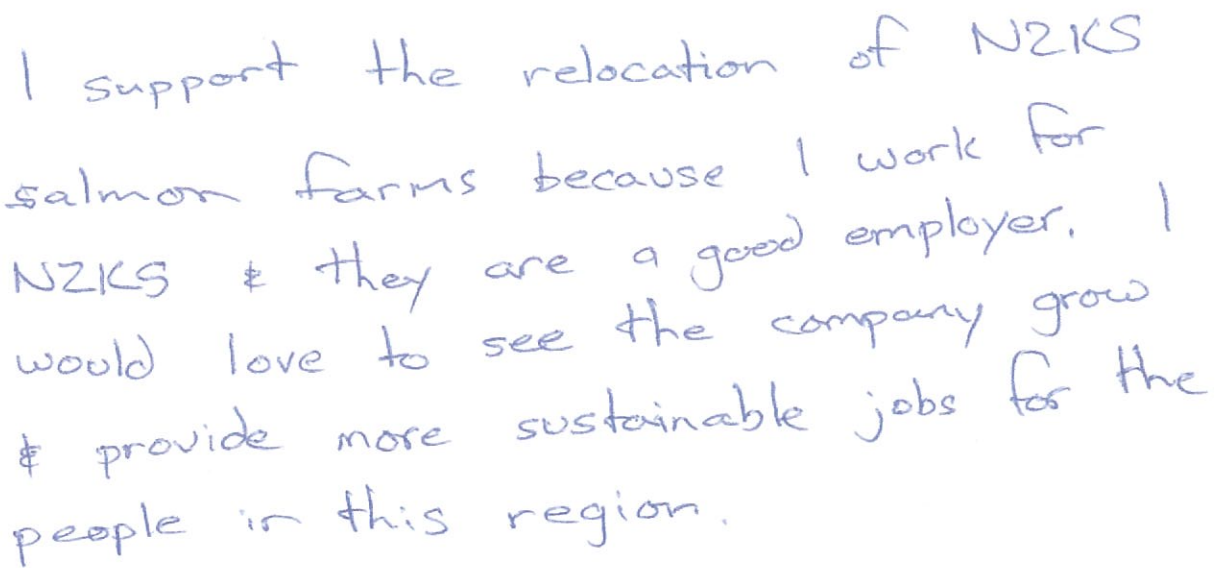 I support the relocation of NZKS
salmon farms because I work for
NZKS & they are a good employer. I
would love to see the company grow
& provide more sustainable jobs for the
people in this region.